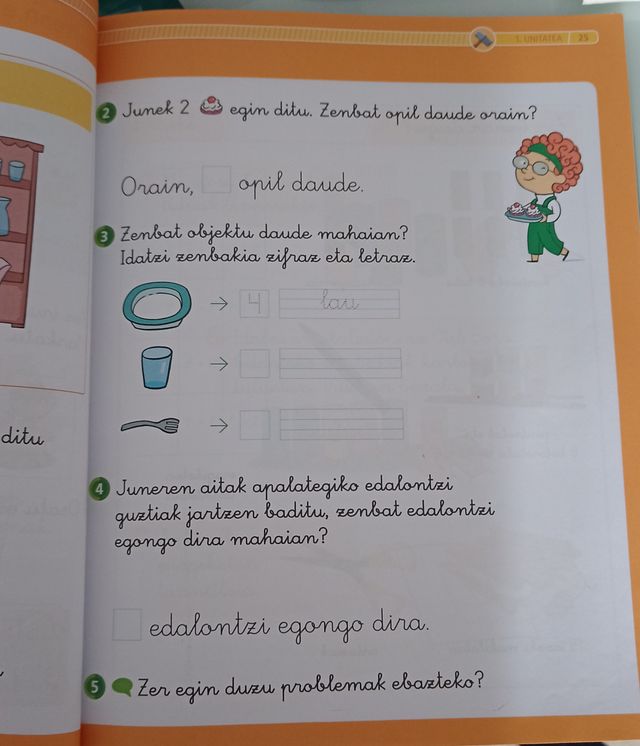 1. UNITATEA 25
2 Junek 2 egin ditu. Zenbat opil daude orain?
Orain, opil daude.
3 Zenbat objektu daude mahaian?
Idatzi zenbakia zifraz eta letraz.
4 lau
ditu
4 Juneren aitak apalategiko edalontzi
guztiak jartzen baditu, zenbat edalontzi
egongo dira mahaian?
edalontzi egongo dira.
5 Zer egin duzu problemak ebazteko?